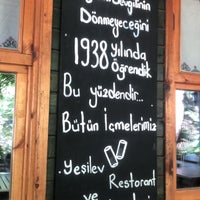 Sevgilinin
Dönmeyeceğini
1938 yılında
Öğrendik
Bu yüzdendir...
Bütün İçmelerimiz
Yeşilev
Restorant
ve